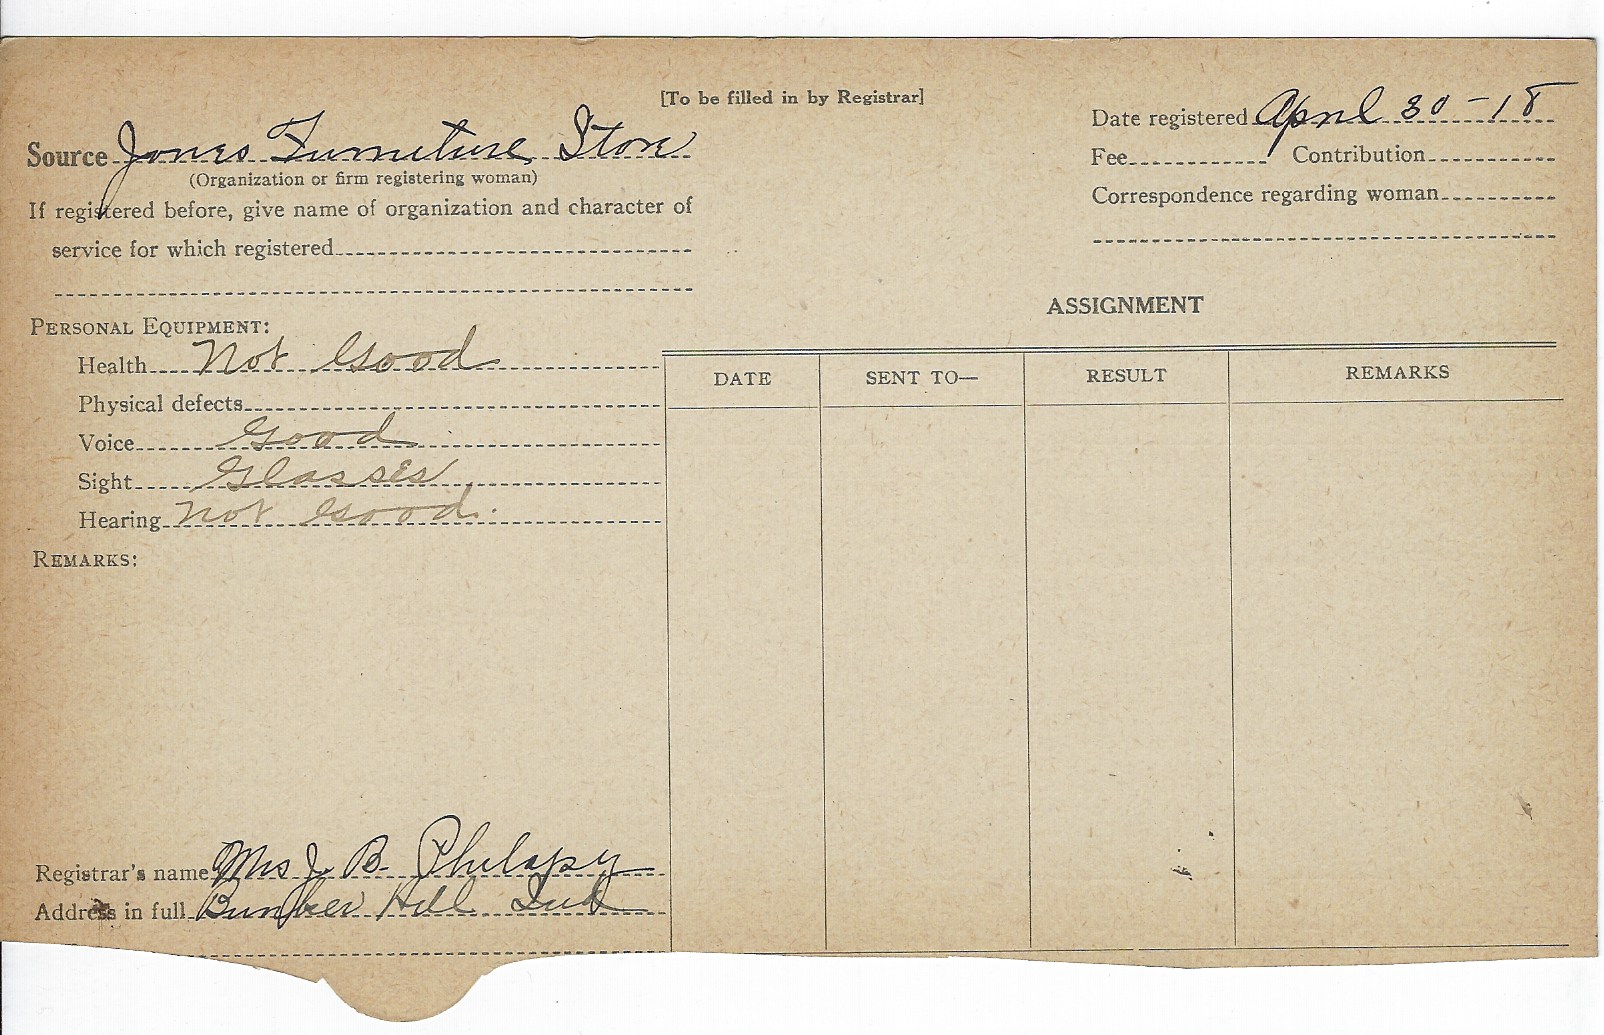 [To be filled in by Registrar]
Source Jones Furniture Store
(Organization or firm registering woman)
If registered before, give name of organization and character of
service for which registered
Date registered April 30-18
Fee Contribution
Correspondence regarding woman
PERSONAL EQUIPMENT:
Health Not Good
Physical defects
Voice Good
Sight Glasses
Hearing Not Good.
REMARKS:
Registrar's name Mrs J. B. Philapy
Address in full Bunker Hill Ind
ASSIGNMENT
DATE SENT TO— RESULT REMARKS